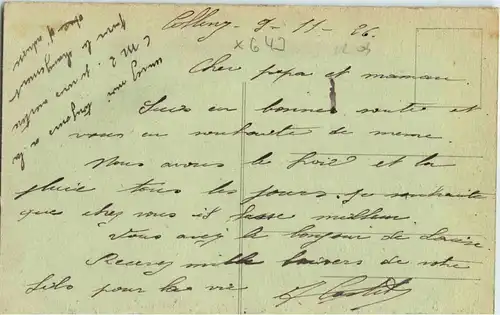 9-11-26.
x 642
Cher papa et maman.
Suis en bonne santé et
vous en souhaite de meme.
Nous avons le froid et la
pluie tous les jours. Je souhaite
que chez vous il fasse meilleur
Vous avez le bonjour de Louise
Recevez mille baisers de votre
fils pour la vie
écrivez moi toujours a la
C M 2. Je vous
pour le changement
d'adresse